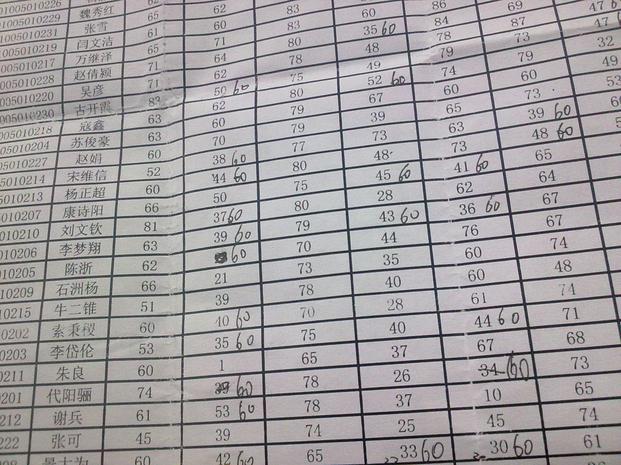 1005010226 62
1005010229 魏秀红 65 62 83
1005010231 张雪 65 62 83
1005010219 闫文洁 62 60 83
005010217 万维泽 65 71 71 60 86
005010228 赵倩颖 71 64 80 35 60 84 69
005010220 吴彦 71 62 78 48 78 87 47
005010230 古开霞 83 50 60 75 49 79 79 32
005010218 寇鑫 63 62 80 52 60 74 60 49
05010204 苏俊豪 63 60 79 67 60 73 53
05010227 赵娟 60 70 79 39 65 39 60
05010214 宋维信 52 38 60 77 73 63 48 60
5010213 杨正超 60 44 60 80 48 73 65
5010207 康诗阳 66 50 75 45 60 41 60 64
010210 刘文钦 81 37 60 80 28 62 67
010206 李梦翔 63 39 60 79 43 60 36 60 67
010205 陈浙 62 60 70 44 76 74
010209 石洲杨 66 21 73 35 60 48
010215 牛二锥 51 39 78 40 60 74
0202 素秉稷 60 40 60 70 28 61 71
0203 李岱伦 53 35 60 75 40 44 60 68
0211 朱良 60 1 65 37 67 73
0201 代阳骊 74 39 60 78 26 34 60 65
212 谢兵 61 53 60 78 37 10 74
222 张可 45 39 74 25 45 61
60 42 60 65 33 60 30 60